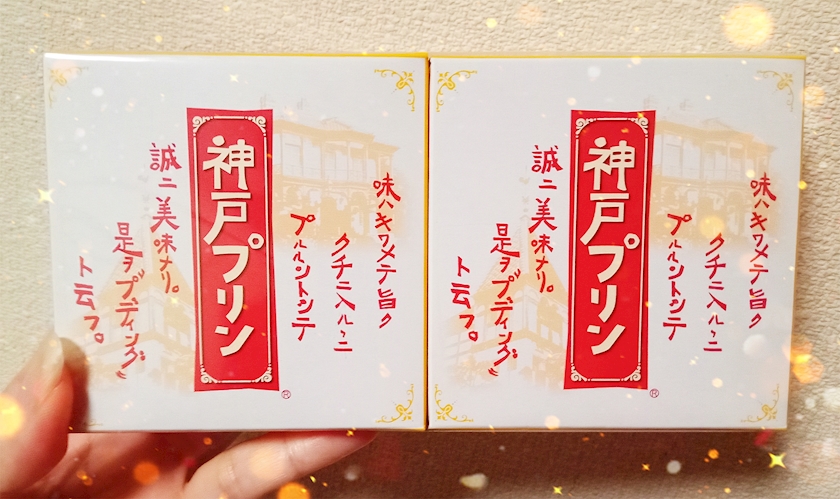 味ハキワメテ旨ク
クチニ入ルヽニ
プルルントシテ
神戸プリン
®
誠ニ美味ナリ。
是ヲプディング〟
ト云フ。
味ハキワメテ旨ク
クチニ入ルヽニ
プルルントシテ
神戸プリン
®
誠ニ美味ナリ。
是ヲプディング〟
ト云フ。